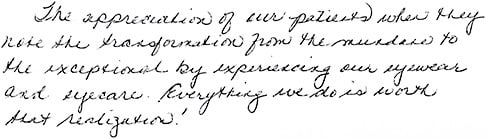 The appreciation of our patients when they
note the transformation from the mundane to
the exceptional by experiencing our eyewear
and eyecare. Everything we do is worth
that realization!